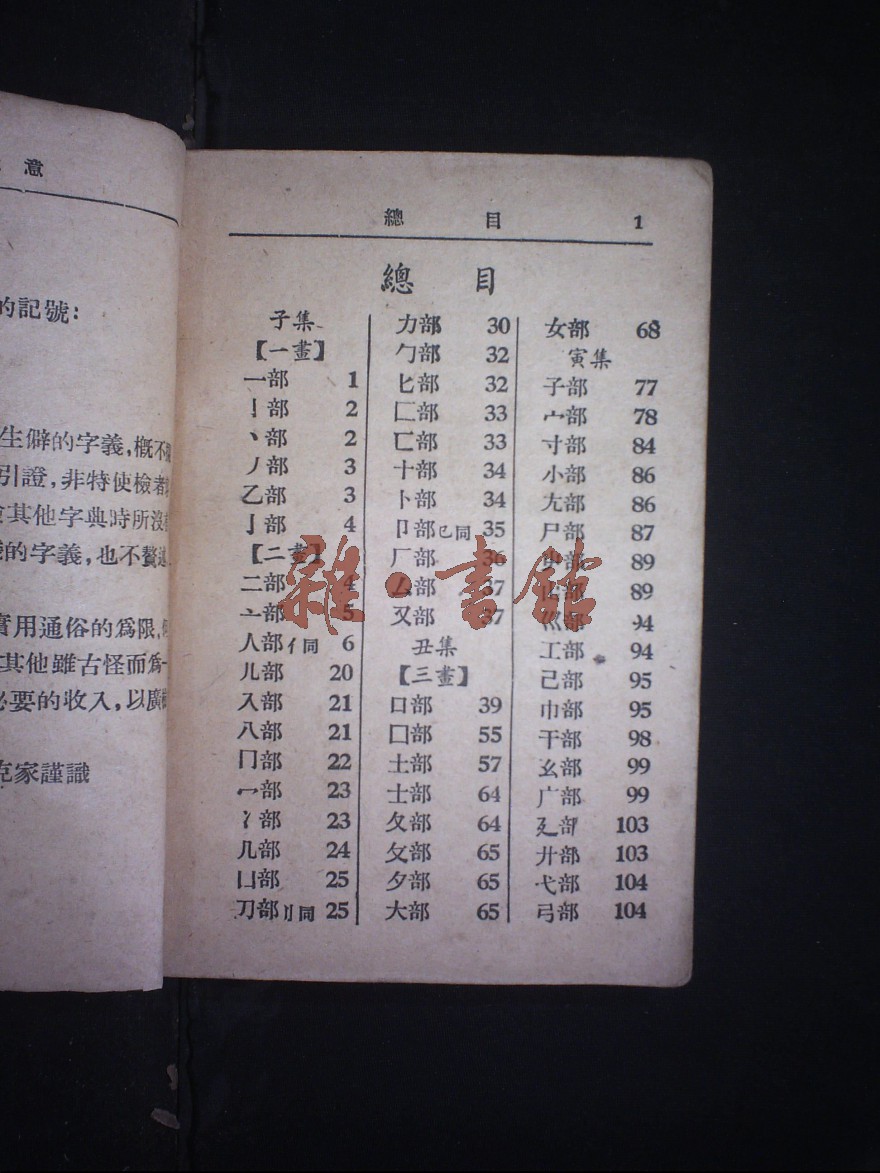 意
的記號:
生僻的字義,概不
引證,非特使檢者
其他字典時所沒
的字義,也不贅述
實用通俗的爲限,
其他雖古怪而爲一
必要的收入,以廣
克家謹識
總目 1
總目
子集
【一畫】
一部 1
丨部 2
丶部 2
丿部 3
乙部 3
亅部 4
【二畫】
二部 4
亠部 5
人部亻同 6
儿部 20
入部 21
八部 21
冂部 22
冖部 23
冫部 23
几部 24
凵部 25
刀部刂同 25
力部 30
勹部 32
匕部 32
匚部 33
匸部 33
十部 34
卜部 34
卩部㔾同 35
厂部 36
厶部 37
又部 37
丑集
【三畫】
口部 39
囗部 55
土部 57
士部 64
夂部 64
夊部 65
夕部 65
大部 65
女部 68
寅集
子部 77
宀部 78
寸部 84
小部 86
尢部 86
尸部 87
屮部 89
山部 89
巛部 94
工部 94
己部 95
巾部 95
干部 98
玄部 99
广部 99
廴部 103
廾部 103
弋部 104
弓部 104
雜·書館